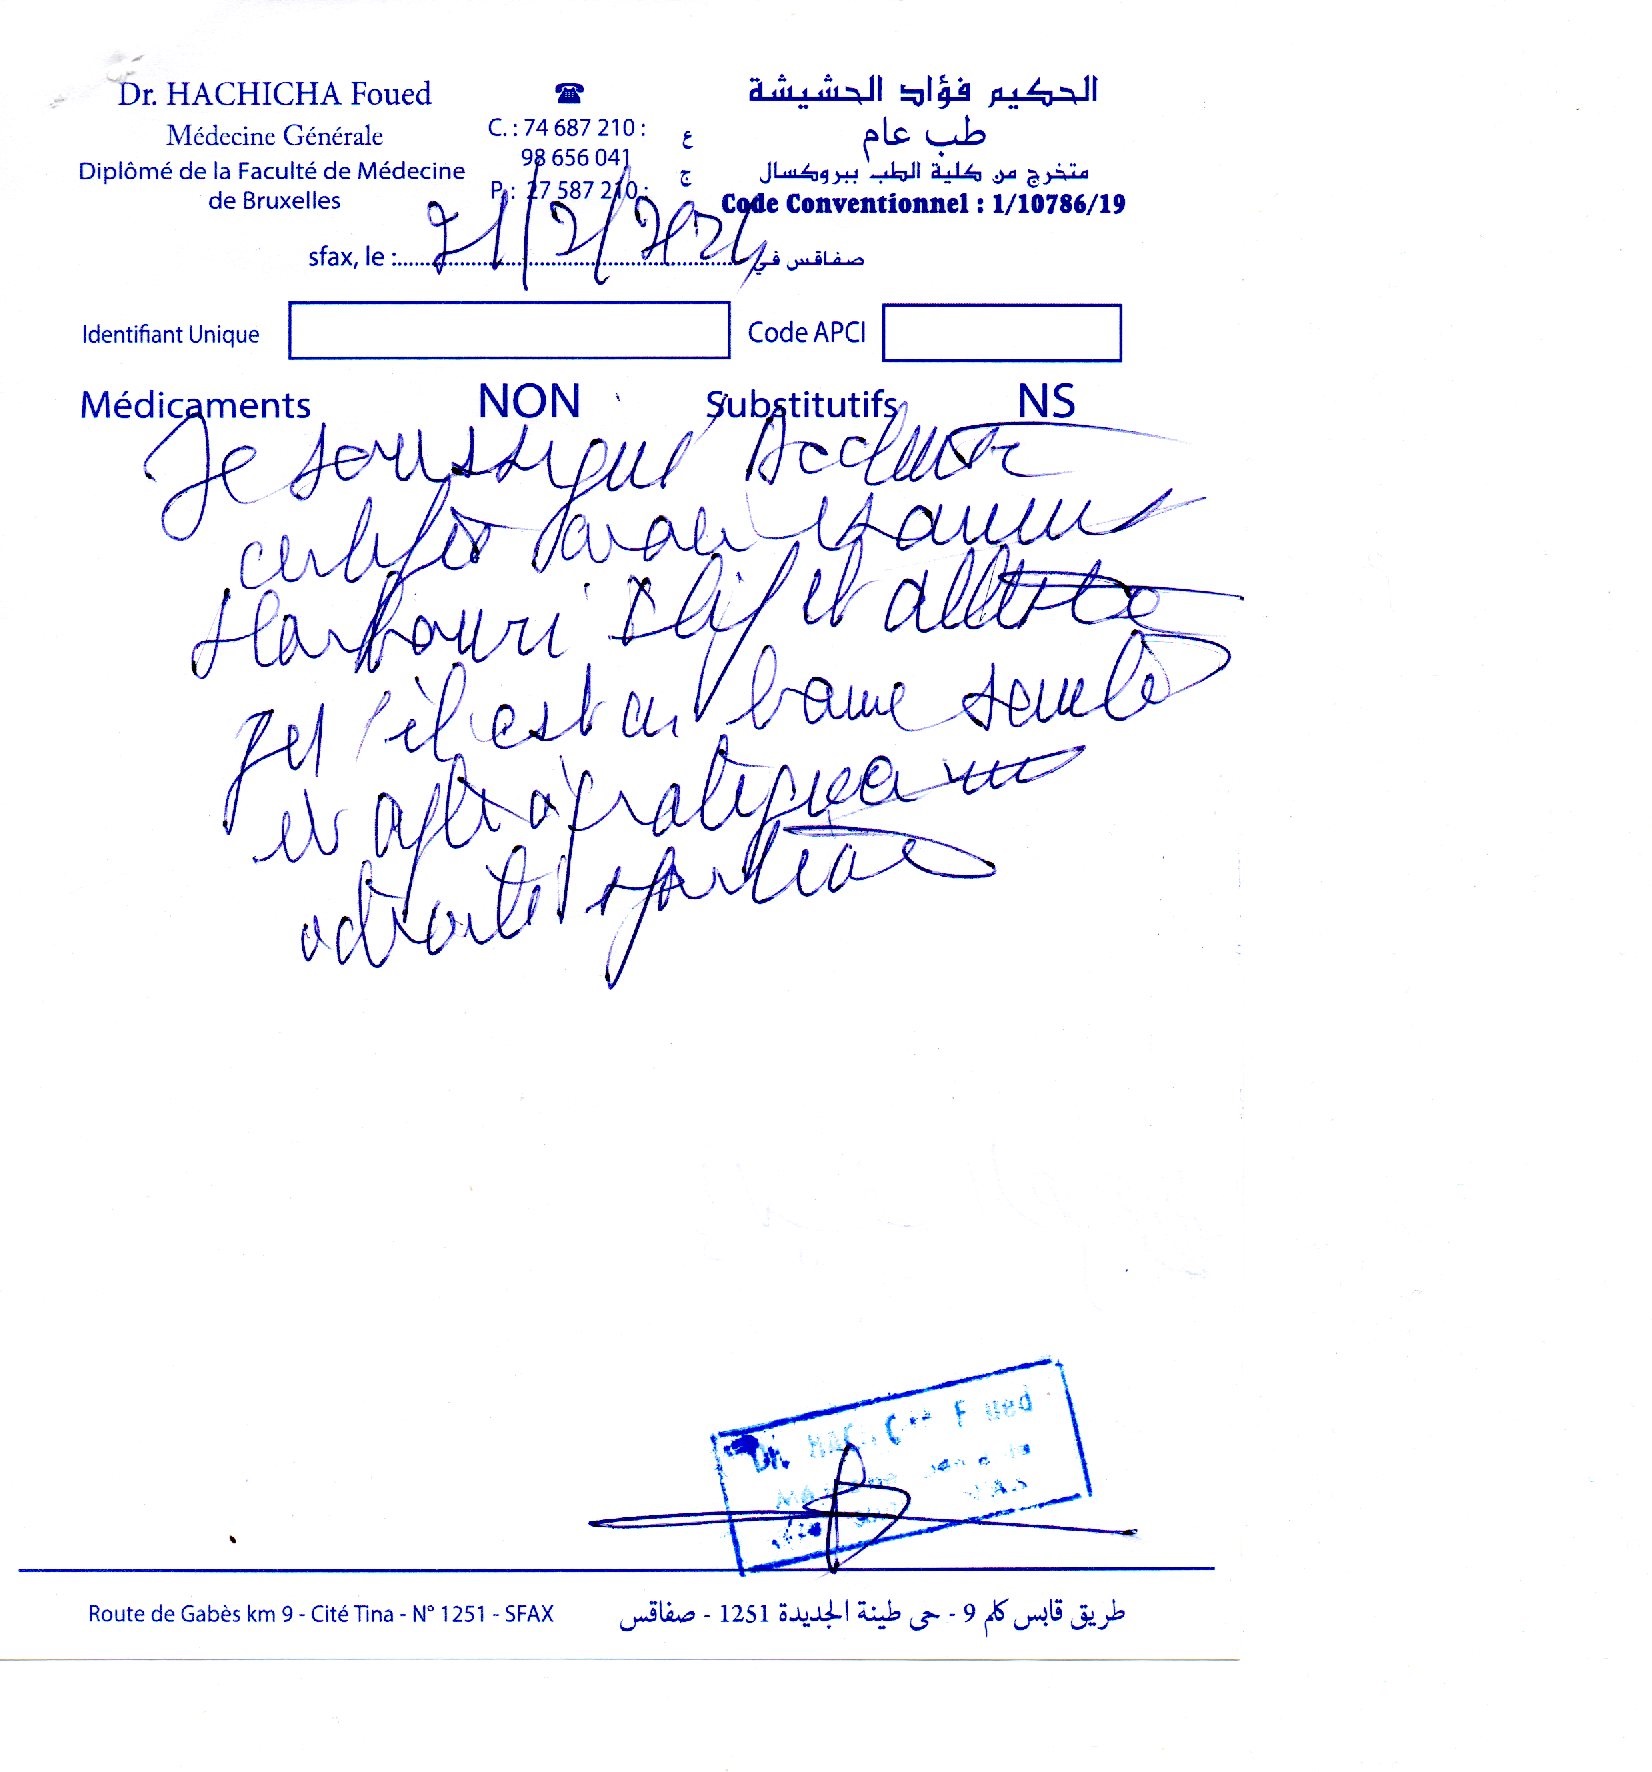 Dr. HACHICHA Foued
Médecine Générale
Diplômé de la Faculté de Médecine
de Bruxelles
☎
C. : 74 687 210 : ع
98 656 041
P. : 27 587 210 : ج
الحكيم فؤاد الحشيشة
طب عام
متخرج من كلية الطب ببروكسال
Code Conventionnel : 1/10786/19
sfax, le : 21/2/2024 صفاقس في
Identifiant Unique Code APCI
Médicaments NON Substitutifs NS
Je soussigné Docteur
certifie avoir examiné
et atteste
qu'il est en bonne santé
et apte à pratiquer une
activité sportive
Dr. Foued
Route de Gabès km 9 - Cité Tina - N° 1251 - SFAX
طريق قابس كلم 9 - حي طينة الجديدة 1251 - صفاقس